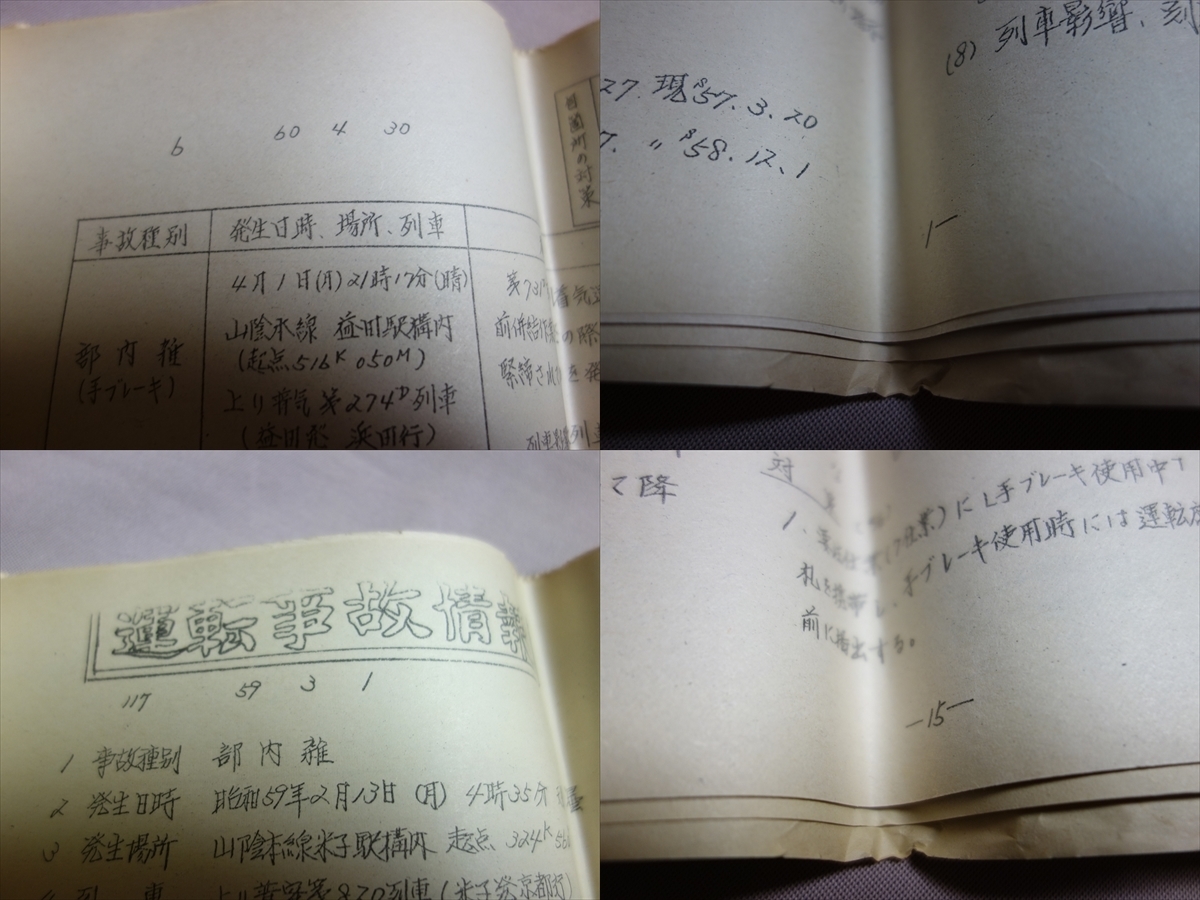 6 60 4 30
自箇所の対策
事故種別 発生日時、場所、列車
4月1日(月)21時17分(晴)
山陰本線 益田駅構内
(起点516K 050M)
部内雑
(手ブレーキ)
上り普気第274D列車
(益田発 浜田行)
前併結
の際
緊締され
を発
(8) 列車影響、刻
27. 現S57.3.20
7. 〃 S58.12.1
1-
運転事故情報
117 59 3 1
1 事故種別 部内雑
2 発生日時 昭和59年2月13日(月) 4時35分
3 発生場所 山陰本線米子駅構内 起点 324K
4 列車 上り 820列車(米子発京都行)
て降
対
)に「手ブレーキ使用中」
手ブレーキ使用時には運転席
札を携帯し、
前に掲出する。
-15-